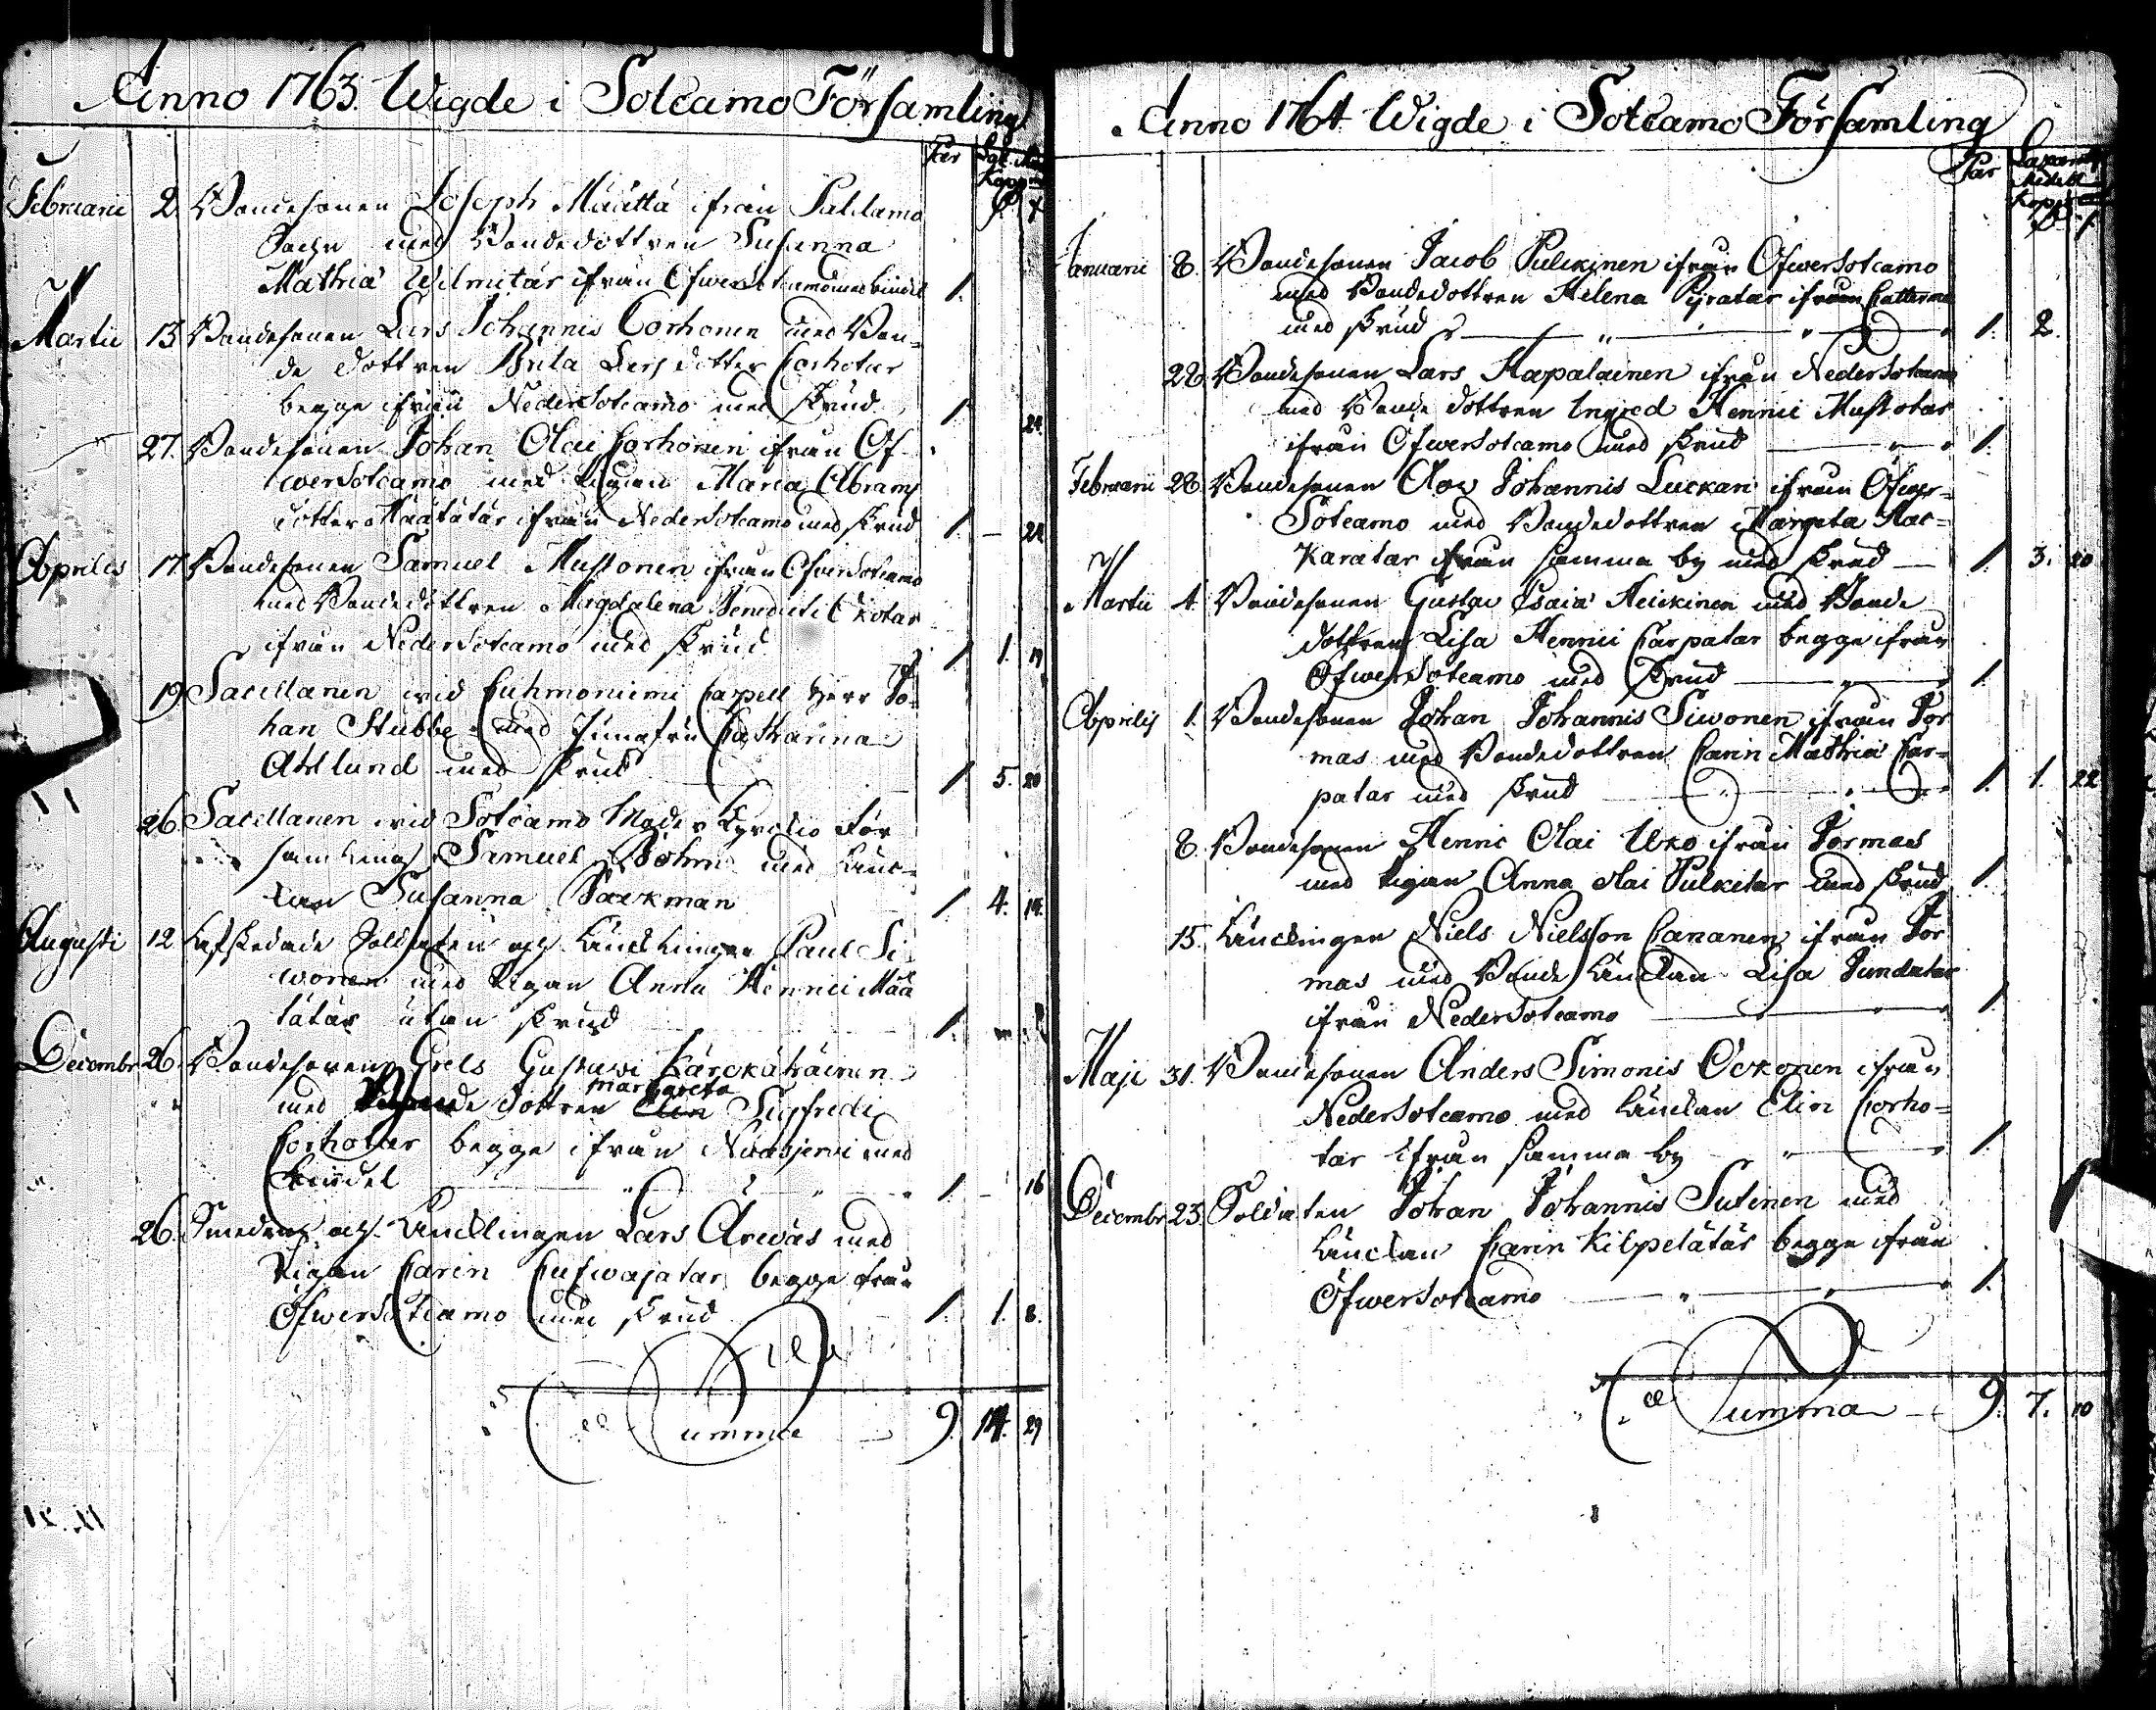 Anno 1763. Wigde i Sotcamo Församling
Par
Februarii 2 Bondesonen Joseph Määttä ifrån Paldamo
Sochn med Bondedottren Susanna
Mathiæ Wilmitär ifrån Öfwersotcamo med bindel 1.
Martii 13 Bondesonen Lars Johannis Corhonen med Bon-
de dottren Brita Lars dotter Corhotar
begge ifrån Nedersotcamo med skrud 1. 24.
27. Bondesonen Johan Olai Corhonen ifrån Öf-
wersotcamo med Pigan Maria Abrams
dotter Määtätär ifrån Nedersotcamo med skrud 1. — 24
Aprilis 17. Bondesonen Samuel Mustonen ifrån Öfwersotcamo
med Bondedottren Magdalena Benedicti Ckotar
ifrån Nedersotcamo med skrud 1. 1. 19
19 Sacellanen wid Cuhmoniemi Capell Herr Jo-
han Stubbe med Jungfru Catharina
Ahllund med skrud 1. 5. 20
26 Sacellanen wid Sotcamo Moder Kyrckio För
samling Samuel Böhm med Änc-
kan Susanna Backman 1. 4. 14.
Augusti 12 Afskedade Soldaten och Änklingen Paul Si
wonen med Pigan Anna Hennici Mää
tätär utan skrud 1.
Decembr 26. Bondesonen Grels Gustavi Kärckähäinen
margareta
med Bonde dottren Elin Sigfredi
Corhotar begge ifrån Nuasjerwi med
bindel 1. — 16
26. Smeden och Äncklingen Lars Arwas med
Pigan Carin Cufwajatar begge från
Öfwersotcamo med skrud 1. 1. 8.
Summa 9. 14. 29
Anno 1764 Wigde i Sotcamo Församling
Par
Januarii 8. Bondesonen Jacob Pulckinen ifrån Öfwersotcamo
med Bondedottren Helena Pyratar ifrån
med skrud 1. 2.
22 Bondesonen Lars Hapalainen ifrån Nedersotcamo
med Bonde dottren Ingred Hennici Mustotar
ifrån Öfwersotcamo med skrud 1.
Februarii 28 Bondesonen Olov Johannis Luckari ifrån Öfwer-
Sotcamo med Bondedottren Margeta Hac-
karatar ifrån samma by med skrud 1. 3. 20
Martii 4. Bondesonen Gustav Esaiæ Heickinen med Bonde
dottren Lisa Hennici Carpatar begge ifrån
Öfwersotcamo med skrud 1.
Aprilis 1. Bondesonen Johan Johannis Siwonen ifrån Jor
mas med Bondedottren Carin Mathiæ Car-
patar med skrud 1. 1. 22
8. Bondesonen Henric Olai Ucko ifrån Jormas
med Pigan Anna Olai Pulckitar med skrud 1.
15. Äncklingen Niels Nielsson Cananen ifrån Jor
mas med Bonde Änckan Lisa Jundatar
ifrån Nedersotcamo 1.
Maji 31. Bondesonen Anders Simonis Ockonen ifrån
Nedersotcamo med Änckan Elin Corho-
tar ifrån samma by 1.
Decembr 23. Soldaten Johan Johannis Sutinen med
Änckan Carin Kilpelätär begge ifrån
Öfwersotcamo 1.
Summa 9. 7. 10